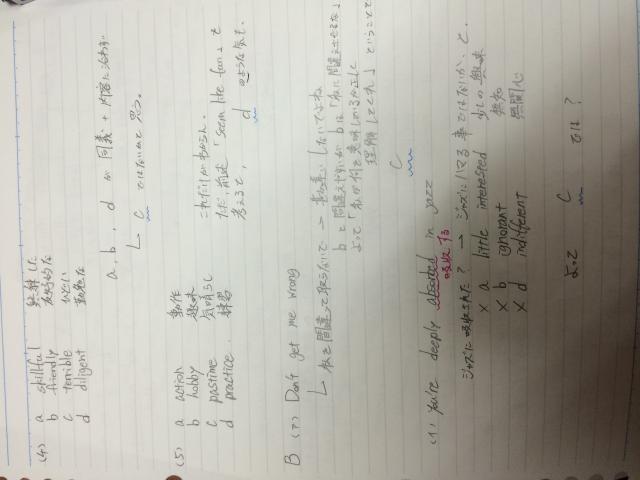 (4) a skillful 熟練した
b friendly 友好的な
c terrible ひどい
d diligent 勤勉な
a, b, d が 同義 + 内容に沿わない
↳ c ではないかと思う。
(5) a action 動作
b hobby 趣味
c pastime 気晴らし
d practice. 練習
これだけじゃわからん。
ただ、前述「seem like fun」を
考えると、 d のような気も。
B (ア) Don't get me wrong
↳ 私を間違って取らないで → 勘違いしないでよね
bと間違えやすいが bは「私に間違えさせるな」
よって「私が何を意味しているか正しく
理解してくれ」ということで
c
(イ) You're deeply absorbed in jazz
吸収する
ジャズに吸収された? → ジャズにハマる事ではないか、と。
× a little interested 少しの興味
× b ignorant 無知
× d indifferent 無関心
よって c では?